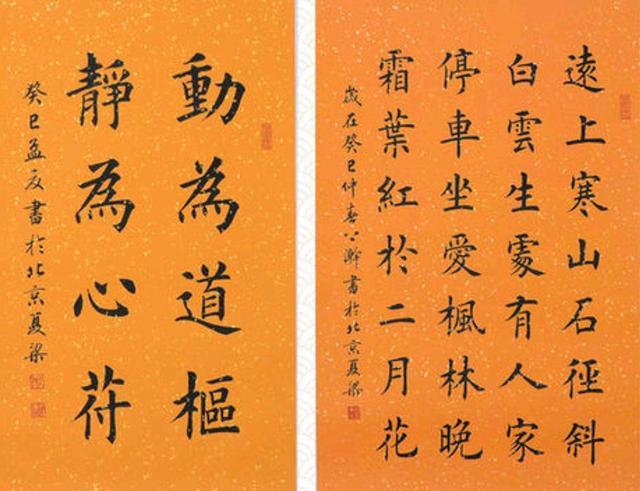 動為道樞
靜為心苻
癸巳孟夏書於北京夏梁
遠上寒山石徑斜
白雲生處有人家
停車坐愛楓林晚
霜葉紅於二月花
歲在癸巳仲春書於北京夏梁